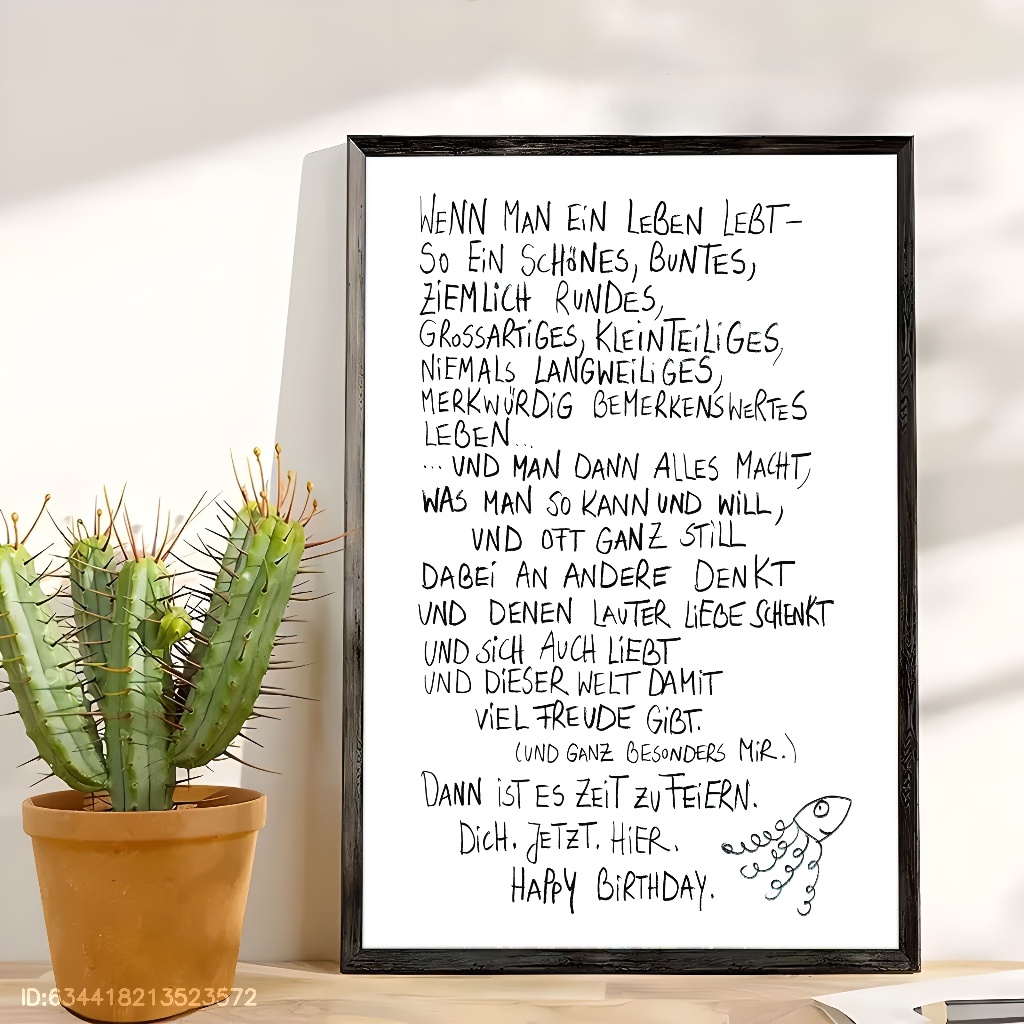 WENN MAN EIN LEBEN LEBT–
SO EIN SCHÖNES, BUNTES,
ZIEMLICH RUNDES,
GROSSARTIGES, KLEINTEILIGES,
NIEMALS LANGWEILIGES,
MERKWÜRDIG BEMERKENSWERTES
LEBEN...
...UND MAN DANN ALLES MACHT,
WAS MAN SO KANN UND WILL,
UND OFT GANZ STILL
DABEI AN ANDERE DENKT
UND DENEN LAUTER LIEBE SCHENKT
UND SICH AUCH LIEBT
UND DIESER WELT DAMIT
VIEL FREUDE GIBT.
(UND GANZ BESONDERS MIR.)
DANN IST ES ZEIT ZU FEIERN.
DICH. JETZT. HIER.
HAPPY BIRTHDAY.
ID:634418213523572